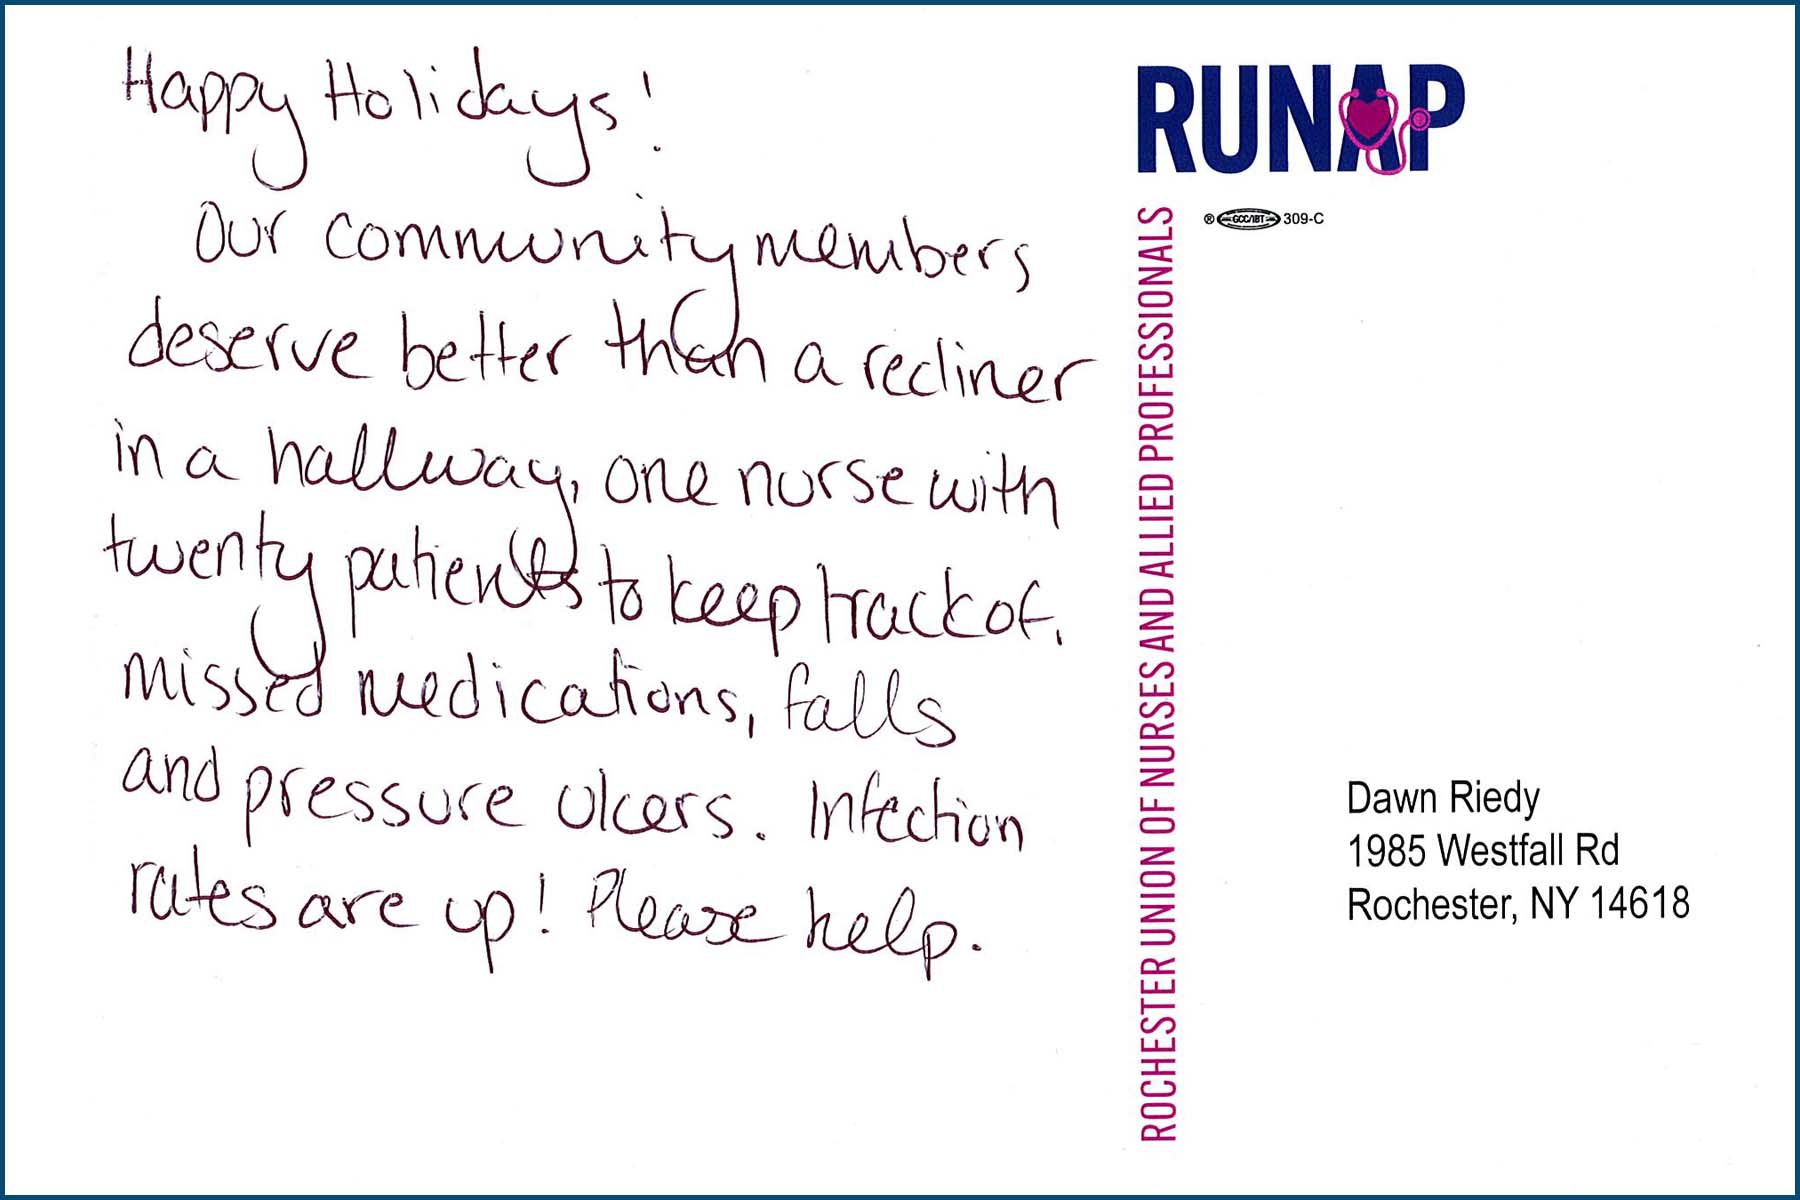 Happy Holidays!
Our community members
deserve better than a recliner
in a hallway, one nurse with
twenty patients to keep track of.
missed medications, falls
and pressure ulcers. Infection
rates are up! Please help.
RUNAP
® GCC/IBT 309-C
ROCHESTER UNION OF NURSES AND ALLIED PROFESSIONALS
Dawn Riedy
1985 Westfall Rd
Rochester, NY 14618